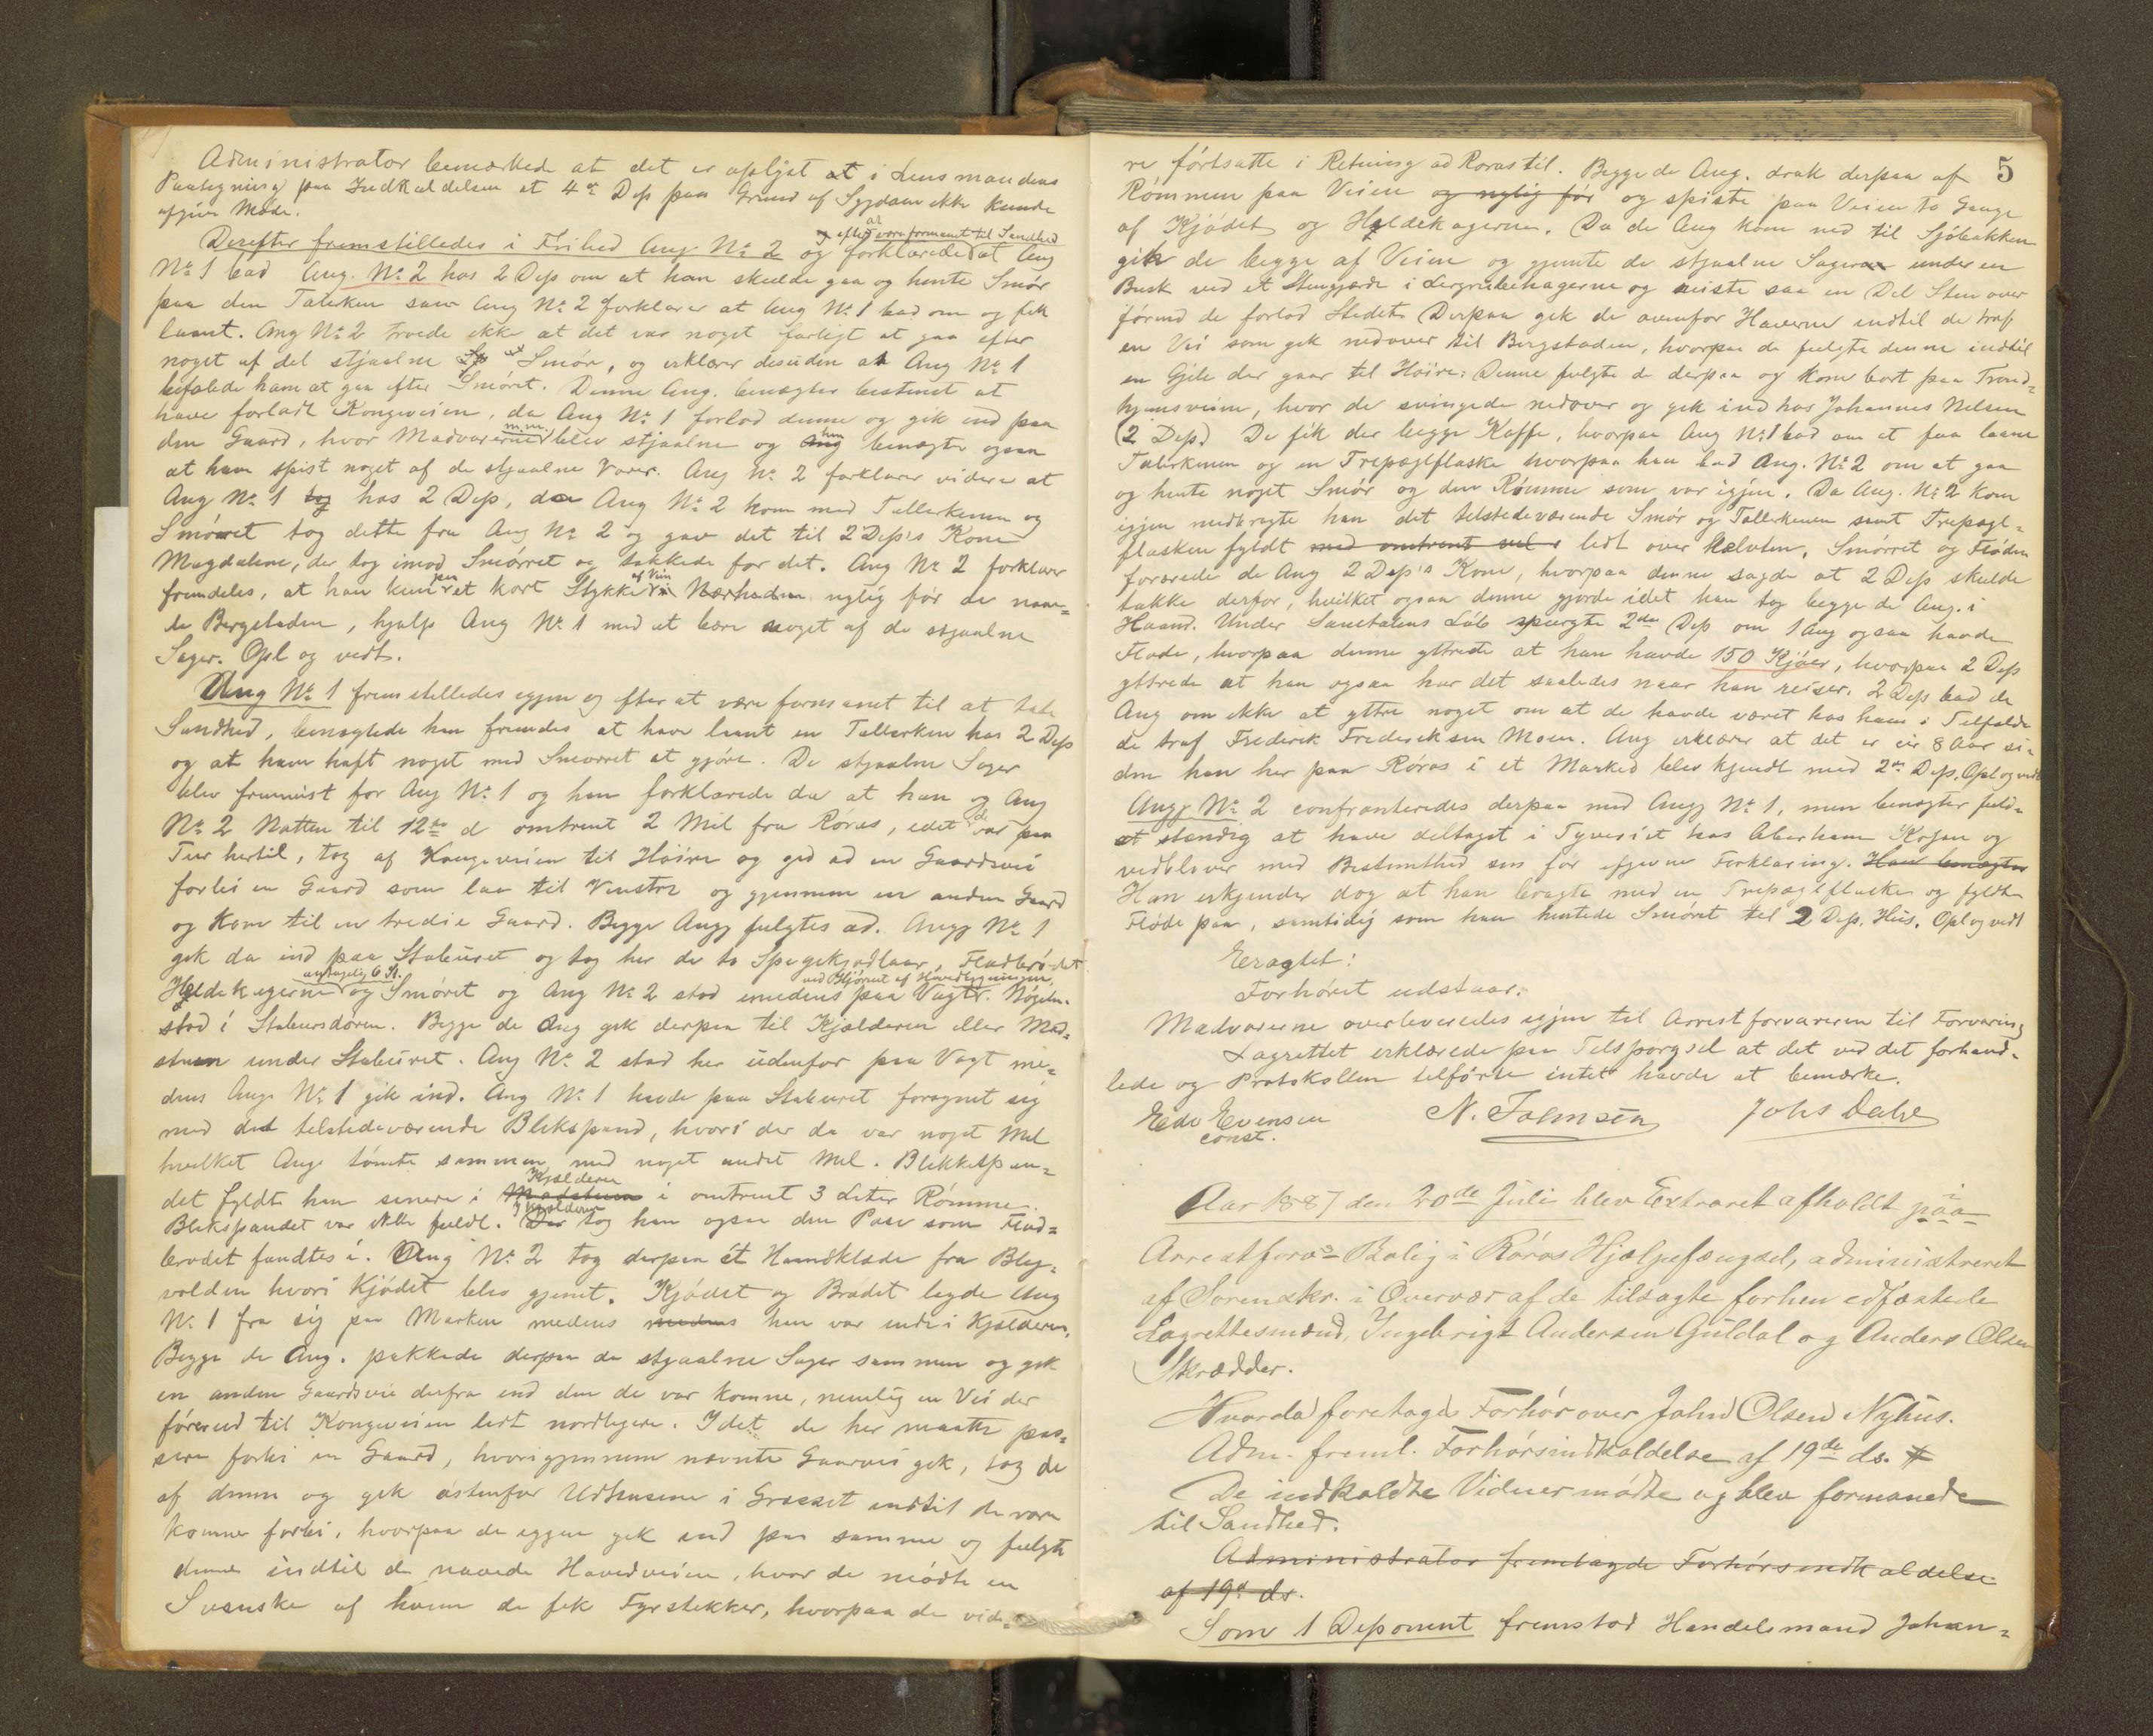 Administrator bemærkede at det er oplyst at i Lensmandens
Paategning paa Indkaldelsen at 4de Dep paa Grund af Sygdom ikke kunde
afgive Møde.
Derefter fremstilledes i Frihed Ang No 2 og efter at være formanet til Sandhed forklarede at Ang
No 1 bad Ang. No 2 hos 2 Dep om at han skulde gaa og hente Smør
paa den Talerken som Ang No 2 forklarer at Ang No 1 bad om og fik
laant. Ang No 2 troede ikke at det var noget farligt at gaa efter
noget af det stjaalne Smør, og erklærer desuden at Ang No 1
befalede ham at gaa efter Smøret. Denne Ang. benægter bestemt at
have forladt Kongeveien, da Ang No 1 forlod denne og gik ind paa
den Gaard, hvor Madvarerne m.m. blev stjaalne og han benægter ogsaa
at have spist noget af de stjaalne Varer. Ang No 2 forklarer videre at
Ang No 1 tog hos 2 Dep, da Ang No 2 kom med Tallerkenen og
Smørret tog dette fra Ang No 2 og gav det til 2 Dep's Kone
Magdalene, der tog imod Smørret og takkede for det. Ang No 2 forklarer
fremdeles, at han kun paa et kort Stykke af Veien i Nærheden nylig før de naae=
de Bergstaden, hjalp Ang No 1 med at bære noget af de stjaalne
Sager. Opl og vedt.
Ang No 1 fremstilledes igjen og efter at være formanet til at tale
Sandhed, benægtede han fremdes at have laant en Tallerken hos 2 Dep
og at have haft noget med Smørret at gjøre. De stjaalne Sager
blev fremvist for Ang No 1 og han forklarede da at han og Ang
No 2 Natten til 12te d omtrent 2 Mil fra Røros, idet de var paa
Tur hertil, tog af Kongeveien til Høire og gik ad en Gaardsvei
forbi en Gaard som laa til Venstre og gjennem en anden Gaard
og kom til en tredie Gaard. Begge Angg fulgtes ad. Angg No 1
gik da ind paa Stabburet og tog her de to Spegekjødlaar, Fladbrødet
Heldekagerne antagelig 6 St. og Smøret og Ang No 2 stod imedens paa Vagt ved Hjørnet af Hovedbygningen. Nøgelen
stod i Stabursdøren. Begge de Ang gik derpaa til Kjælderen eller Mad=
stuen under Staburet. Ang No 2 stod her udenfor paa Vagt me=
dens Ang. No 1 gik ind. Ang No 1 havde paa Staburet forsynet sig
med det tilstedeværende Blikspand, hvori der da var noget Mel
hvilket Ang. tømte sammen med noget andet Mel. Blikkspan=
det fyldte han senere i Madstuen Kjælderen i omtrent 3 Liter Rømme.
Blikspandet var ikke fuldt. Der I Kjælderen tog han ogsaa den Pose som Flad=
brødet fandtes i. Ang No 2 tog derpaa et Haandklæde fra Bley=
volden hvori Kjødet blev gjemt. Kjødet og Brødet lagde Ang
No 1 fra sig paa Marken medens medens han var inde i Kjælderen.
Begge de Ang. pakkede derpaa de stjaalne Sager sammen og gik
en anden Gaardsvei derfra end den de var komne, nemlig en Vei der
førte ind til Kongeveien lidt nordligere. Idet de her maatte pas=
sere forbi en Gaard, hvorigjennem nævnte Gaarvei gik, tog de
af denne og gik østenfor Udhusene i Græsset indtil de vare
komne forbi, hvorpaa de igjen gik ind paa samme og fulgte
denne indtil de naaede Hovedveien, hvor de mødte en
Svenske af hvem de fik Fyrstikker, hvorpaa de vide=
5
re fortsatte i Retning ad Røros til. Begge de Ang. drak derpaa af
Rømmen paa Veien og nylig før og spiste paa Veien to Gange
af Kjødet og Heldekagerne. Da de Ang kom ned til Sjøbakken
gik de begge af Veien og gjemte de stjaalne Sager under en
Busk ved et Stengjærde i Lergrubehagerne og reiste saa en Del Sten over
førend de forlod Stedet. Derpaa gik de ovenfor Haverne indtil de traf
en Vei som gik nedover til Bergstaden, hvorpaa de fulgte denne indtil
en Gjile der gaar til Høire: Denne fulgte de derpaa og kom bort paa Trond=
hjemsveien, hvor de svingede nedover og gik ind hos Johannes Nelsen
(2 Dep.) De fik der begge Kaffe, hvorpaa Ang No 1 bad om at faa laane
Talerkenen og en Trepægleflaske hvorpaa han bad Ang. No 2 om at gaa
og hente noget Smør og den Rømme som var igjen. Da Ang. No 2 kom
igjen medbragte han det tilstedeværende Smør og Tallerkenen samt Trepægl=
flasken fyldt med omtrent vel lidt over halvten. Smørret og Fløden
forærede de Ang 2 Dep's Kone, hvorpaa denne sagde at 2 Dep skulde
takke derfor, hvilket ogsaa denne gjorde idet han tog begge de Ang. i
Haand. Under Samtalens Løb spurgte 2den Dep om 1 Ang ogsaa havde
Fløde, hvorpaa denne yttrede at han havde 150 Kjøer, hvorpaa 2 Dep
yttrede at han ogsaa har det saaledes naar han reiser. 2 Dep bad de
Ang om ikke at yttre noget om at de havde været hos ham i Tilfælde
de traf Frederik Frederiksen Moen. Ang erklærer at det er cir 8 Aar si=
den han her paa Røros i et Marked blev kjendt med 2den Dep. Opl og vedt
Angg No 2 confronteredes derpaa med Angg No 1, men benægter fuld=
stændig at have deltaget i Tyveriet hos Aberham Kojan og
vedbliver med Bestemthed sin før afgivne Forklaring. Han benægter
Han erkjender dog at han bragte med en Trepægleflaske og fyldte
Fløde paa, samtidig som han hentede Smøret til 2 Dep. Hus. Opl og vedt
Eragtet:
Forhøret udstaar.
Madvarerne overleveredes igjen til Arrestforvareren til Forvaring
Lagrettet erklærede paa Tilspørgsel at det ved det forhand=
lede og Protokollen tilførte intet havde at bemærke.
Edv Evensen N. Tolmsen Johs Dahl
const.
Aar 1887 den 20de Juli blev Extraret afholdt i
Arrestforv.s Bolig i Røros Hjælpefængsel, administreret
af Sorenskr. i Overvær af de tilsagte forhen edfæstede
Lagrettesmænd, Ingebrigt Andersen Guldal og Anders Olsen
Skrædder.
Hvorda foretoges Forhør over John Olsen Nyhus.
Adm. freml. Forhørsindkaldelse af 19de ds.
De indkaldte Vidner mødte og blev formanede
til Sandhed.
Administrator fremlagde Forhørsindkaldelse
af 19d ds.
Som 1 Deponent fremstod Handelsmand Johan=